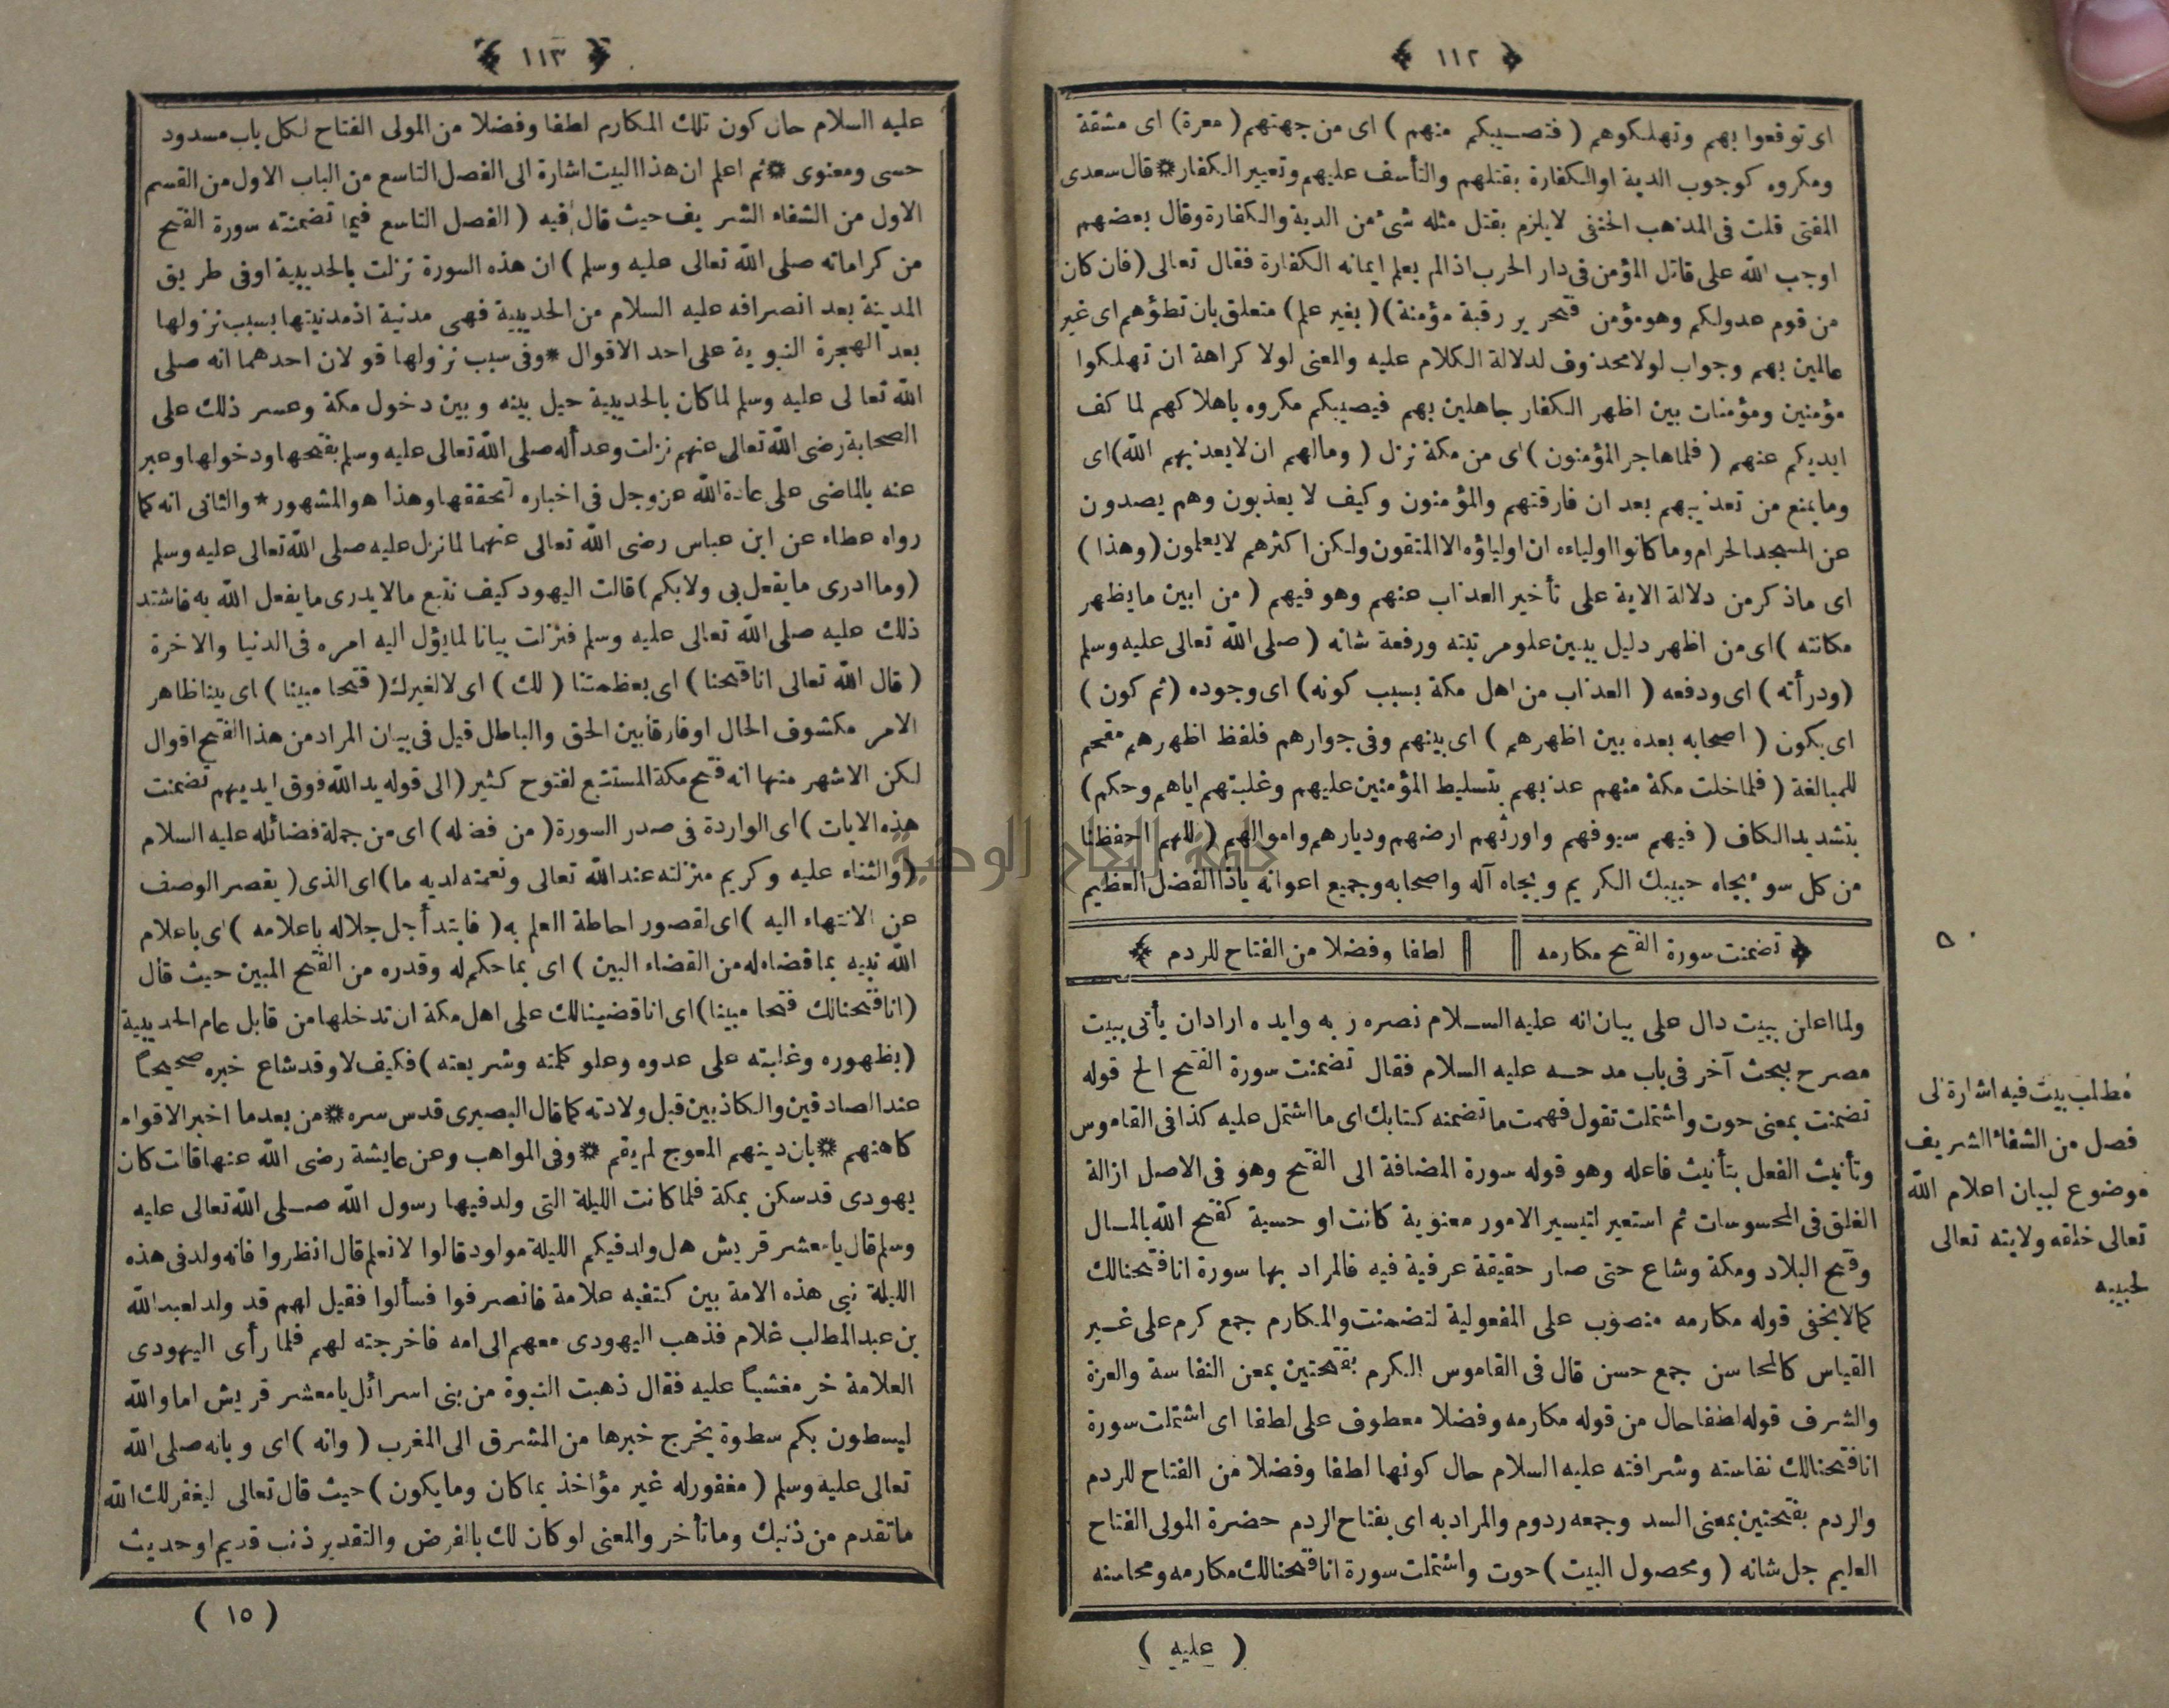 ﴿ ١١٢ ﴾
اى توقعوا بهم وتهلكوهم ( فتصيبكم منهم ) اى من جهتهم ( معرة ) اى مشقة
ومكروه كوجوب الدية او الكفارة بقتلهم والتأسف عليهم وتعيير الكفار * قال سعدى
المفتى قلت فى المذهب الحنفى لا يلزم بقتل مثله شئ من الدية والكفارة وقال بعضهم
اوجب الله على قاتل المؤمن فى دار الحرب اذا لم يعلم ايمانه الكفارة فقال تعالى ( فان كان
من قوم عدو لكم وهو مؤمن فتحرير رقبة مؤمنة ) ( بغير علم ) متعلق بان تطؤهم اى غير
عالمين بهم وجواب لولا محذوف لدلالة الكلام عليه والمعنى لولا كراهة ان تهلكوا
مؤمنين ومؤمنات بين اظهر الكفار جاهلين بهم فيصيبكم مكروه باهلاكهم لما كف
ايديكم عنهم ( فلما هاجر المؤمنون ) اى من مكة نزل ( ومالهم ان لا يعذبهم الله ) اى
وما يمنع من تعذيبهم بعد ان فارقتهم والمؤمنون وكيف لا يعذبون وهم يصدون
عن المسجد الحرام وما كانوا اولياءه ان اولياؤه الا المتقون ولكن اكثرهم لا يعلمون ( وهذا )
اى ما ذكر من دلالة الاية على تأخير العذاب عنهم وهو فيهم ( من ابين ما يظهر
مكانته ) اى من اظهر دليل يبين علو مرتبته ورفعة شانه ( صلى الله تعالى عليه وسلم
( ودرأته ) اى ودفعه ( العذاب من اهل مكة بسبب كونه ) اى وجوده ( ثم كون )
اى بكون ( اصحابه بعده بين اظهرهم ) اى بينهم وفى جوارهم فلفظ اظهرهم مقحم
للمبالغة ( فلما خلت مكة منهم عذبهم بتسليط المؤمنين عليهم وغلبتهم اياهم وحكم )
بتشديد الكاف ( فيهم سيوفهم واورثهم ارضهم وديارهم واموالهم ( اللهم احفظنا
من كل سوء بجاه حبيبك الكريم وبجاه آله واصحابه وجميع اعوانه ياذا الفضل العظيم
﴿ تضمنت سورة الفتح مكارمه || || لطفا وفضلا من الفتاح للردم ﴾
ولما اعلن ببيت دال على بيان انه عليه السلام نصره ربه وايده اراد ان يأتى ببيت
مصرح ببحث آخر فى باب مدحه عليه السلام فقال تضمنت سورة الفتح الح قوله
تضمنت بمعنى حوت واشتملت تقول فهمت ما تضمنه كتابك اى ما اشتمل عليه كذا فى القاموس
وتأنيث الفعل بتأنيث فاعله وهو قوله سورة المضافة الى الفتح وهو فى الاصل ازالة
الغلق فى المحسوسات ثم استعير لتيسير الامور معنوية كانت او حسية كفتح الله بالمال
وفتح البلاد ومكة وشاع حتى صار حقيقة عرفية فيه فالمراد بها سورة انا فتحنا لك
كما لا يخفى قوله مكارمه منصوب على المفعولية لتضمنت والمكارم جمع كرم على غير
القياس كالمحاسن جمع حسن قال فى القاموس الكرم بفتحتين بمعن النفاسة والعزة
والشرف قوله لطفا حال من قوله مكارمه وفضلا معطوف على لطفا اى اشتملت سورة
انا فتحنا لك نفاسته وشرافته عليه السلام حال كونها لطفا وفضلا من الفتاح للردم
والردم بفتحتين بمعنى السد وجمعه ردوم والمراد به اى بفتاح الردم حضرة المولى الفتاح
العليم جل شانه ( ومحصول البيت ) حوت واشتملت سورة انا فتحنا لك مكارمه ومحاسنه
( عليه )
مطلب بيت فيه اشارة لى
فصل من الشفاء الشريف
موضوع لبيان اعلام الله
تعالى خلقه ولايته تعالى
لحبيبه
﴿ ١١٣ ﴾
عليه السلام حال كون تلك المكارم لطفا وفضلا من المولى الفتاح لكل باب مسدود
حسى ومعنوى * ثم اعلم ان هذا البيت اشارة الى الفصل التاسع من الباب الاول من القسم
الاول من الشفاء الشريف حيث قال فيه ( الفصل التاسع فيما تضمنته سورة الفتح
من كراماته صلى الله تعالى عليه وسلم ) ان هذه السورة نزلت بالحديبية او فى طريق
المدينة بعد انصرافه عليه السلام من الحديبية فهى مدنية اذ مدنيتها بسبب نزولها
بعد الهجرة النبوية على احد الاقوال * وفى سبب نزولها قولان احدهما انه صلى
الله تعالى عليه وسلم لما كان بالحديبية حيل بينه وبين دخول مكة وعسر ذلك على
الصحابة رضى الله تعالى عنهم نزلت وعدا له صلى الله تعالى عليه وسلم بفتحها ودخولها وعبر
عنه بالماضى على عادة الله عز وجل فى اخباره لتحققها وهذا هو المشهور * والثانى انه كما
رواه عطاء عن ابن عباس رضى الله تعالى عنهما لما نزل عليه صلى الله تعالى عليه وسلم
( وما ادرى ما يفعل بى ولا بكم ) قالت اليهود كيف نتبع ما لا يدرى ما يفعل الله به فاشتد
ذلك عليه صلى الله تعالى عليه وسلم فنزلت بيانا لما يؤل اليه امره فى الدنيا والاخرة
( قال الله تعالى انا فتحنا ) اى بعظمتنا ( لك ) اى لا لغيرك ( فتحا مبينا ) اى بينا ظاهر
الامر مكشوف الحال او فارقا بين الحق والباطل قيل فى بيان المراد من هذا الفتح اقوال
لكن الاشهر منها انه فتح مكة المستتبع لفتوح كثير ( الى قوله يد الله فوق ايديهم تضمنت
هذه الايات ) اى الواردة فى صدر السورة ( من فضله ) اى من جملة فضائله عليه السلام
( والثناء عليه وكريم منزلته عند الله تعالى ونعمته لديه ما ) اى الذى ( يقصر الوصف
عن الانتهاء اليه ) اى لقصور احاطة العلم به ( فابتدأ جل جلاله باعلامه ) اى باعلام
الله نبيه بما قضاه له من القضاء البين ) اى بما حكم له وقدره من الفتح المبين حيث قال
( انا فتحنا لك فتحا مبينا ) اى انا قضينا لك على اهل مكة ان تدخلها من قابل عام الحديبية
( بظهوره وغلبته على عدوه وعلو كلمته وشريعته ) فكيف لا وقد شاع خبره صحيحًا
عند الصادقين والكاذبين قبل ولادته كما قال البصيرى قدس سره * من بعد ما اخبر الاقوام
كاهنهم * بان دينهم المعوج لم يقم * وفى المواهب وعن عايشة رضى الله عنها قالت كان
يهودى قد سكن بمكة فلما كانت الليلة التى ولد فيها رسول الله صلى الله تعالى عليه
وسلم قال يا معشر قريش هل ولد فيكم الليلة مولود قالوا لا نعلم قال انظروا فانه ولد فى هذه
الليلة نبى هذه الامة بين كتفيه علامة فانصرفوا فسألوا فقيل لهم قد ولد لعبد الله
بن عبد المطلب غلام فذهب اليهودى معهم الى امه فاخرجته لهم فلما رأى اليهودى
العلامة خر مغشيًا عليه فقال ذهبت النبوة من بنى اسرائل يا معشر قريش اما والله
ليسطون بكم سطوة يخرج خبرها من المشرق الى المغرب ( وانه ) اى وبانه صلى الله
تعالى عليه وسلم ( مغفور له غير مؤاخذ بما كان وما يكون ) حيث قال تعالى ليغفر لك الله
ما تقدم من ذنبك وما تأخر والمعنى لو كان لك بالفرض والتقدير ذنب قديم او حديث
( ١٥ )